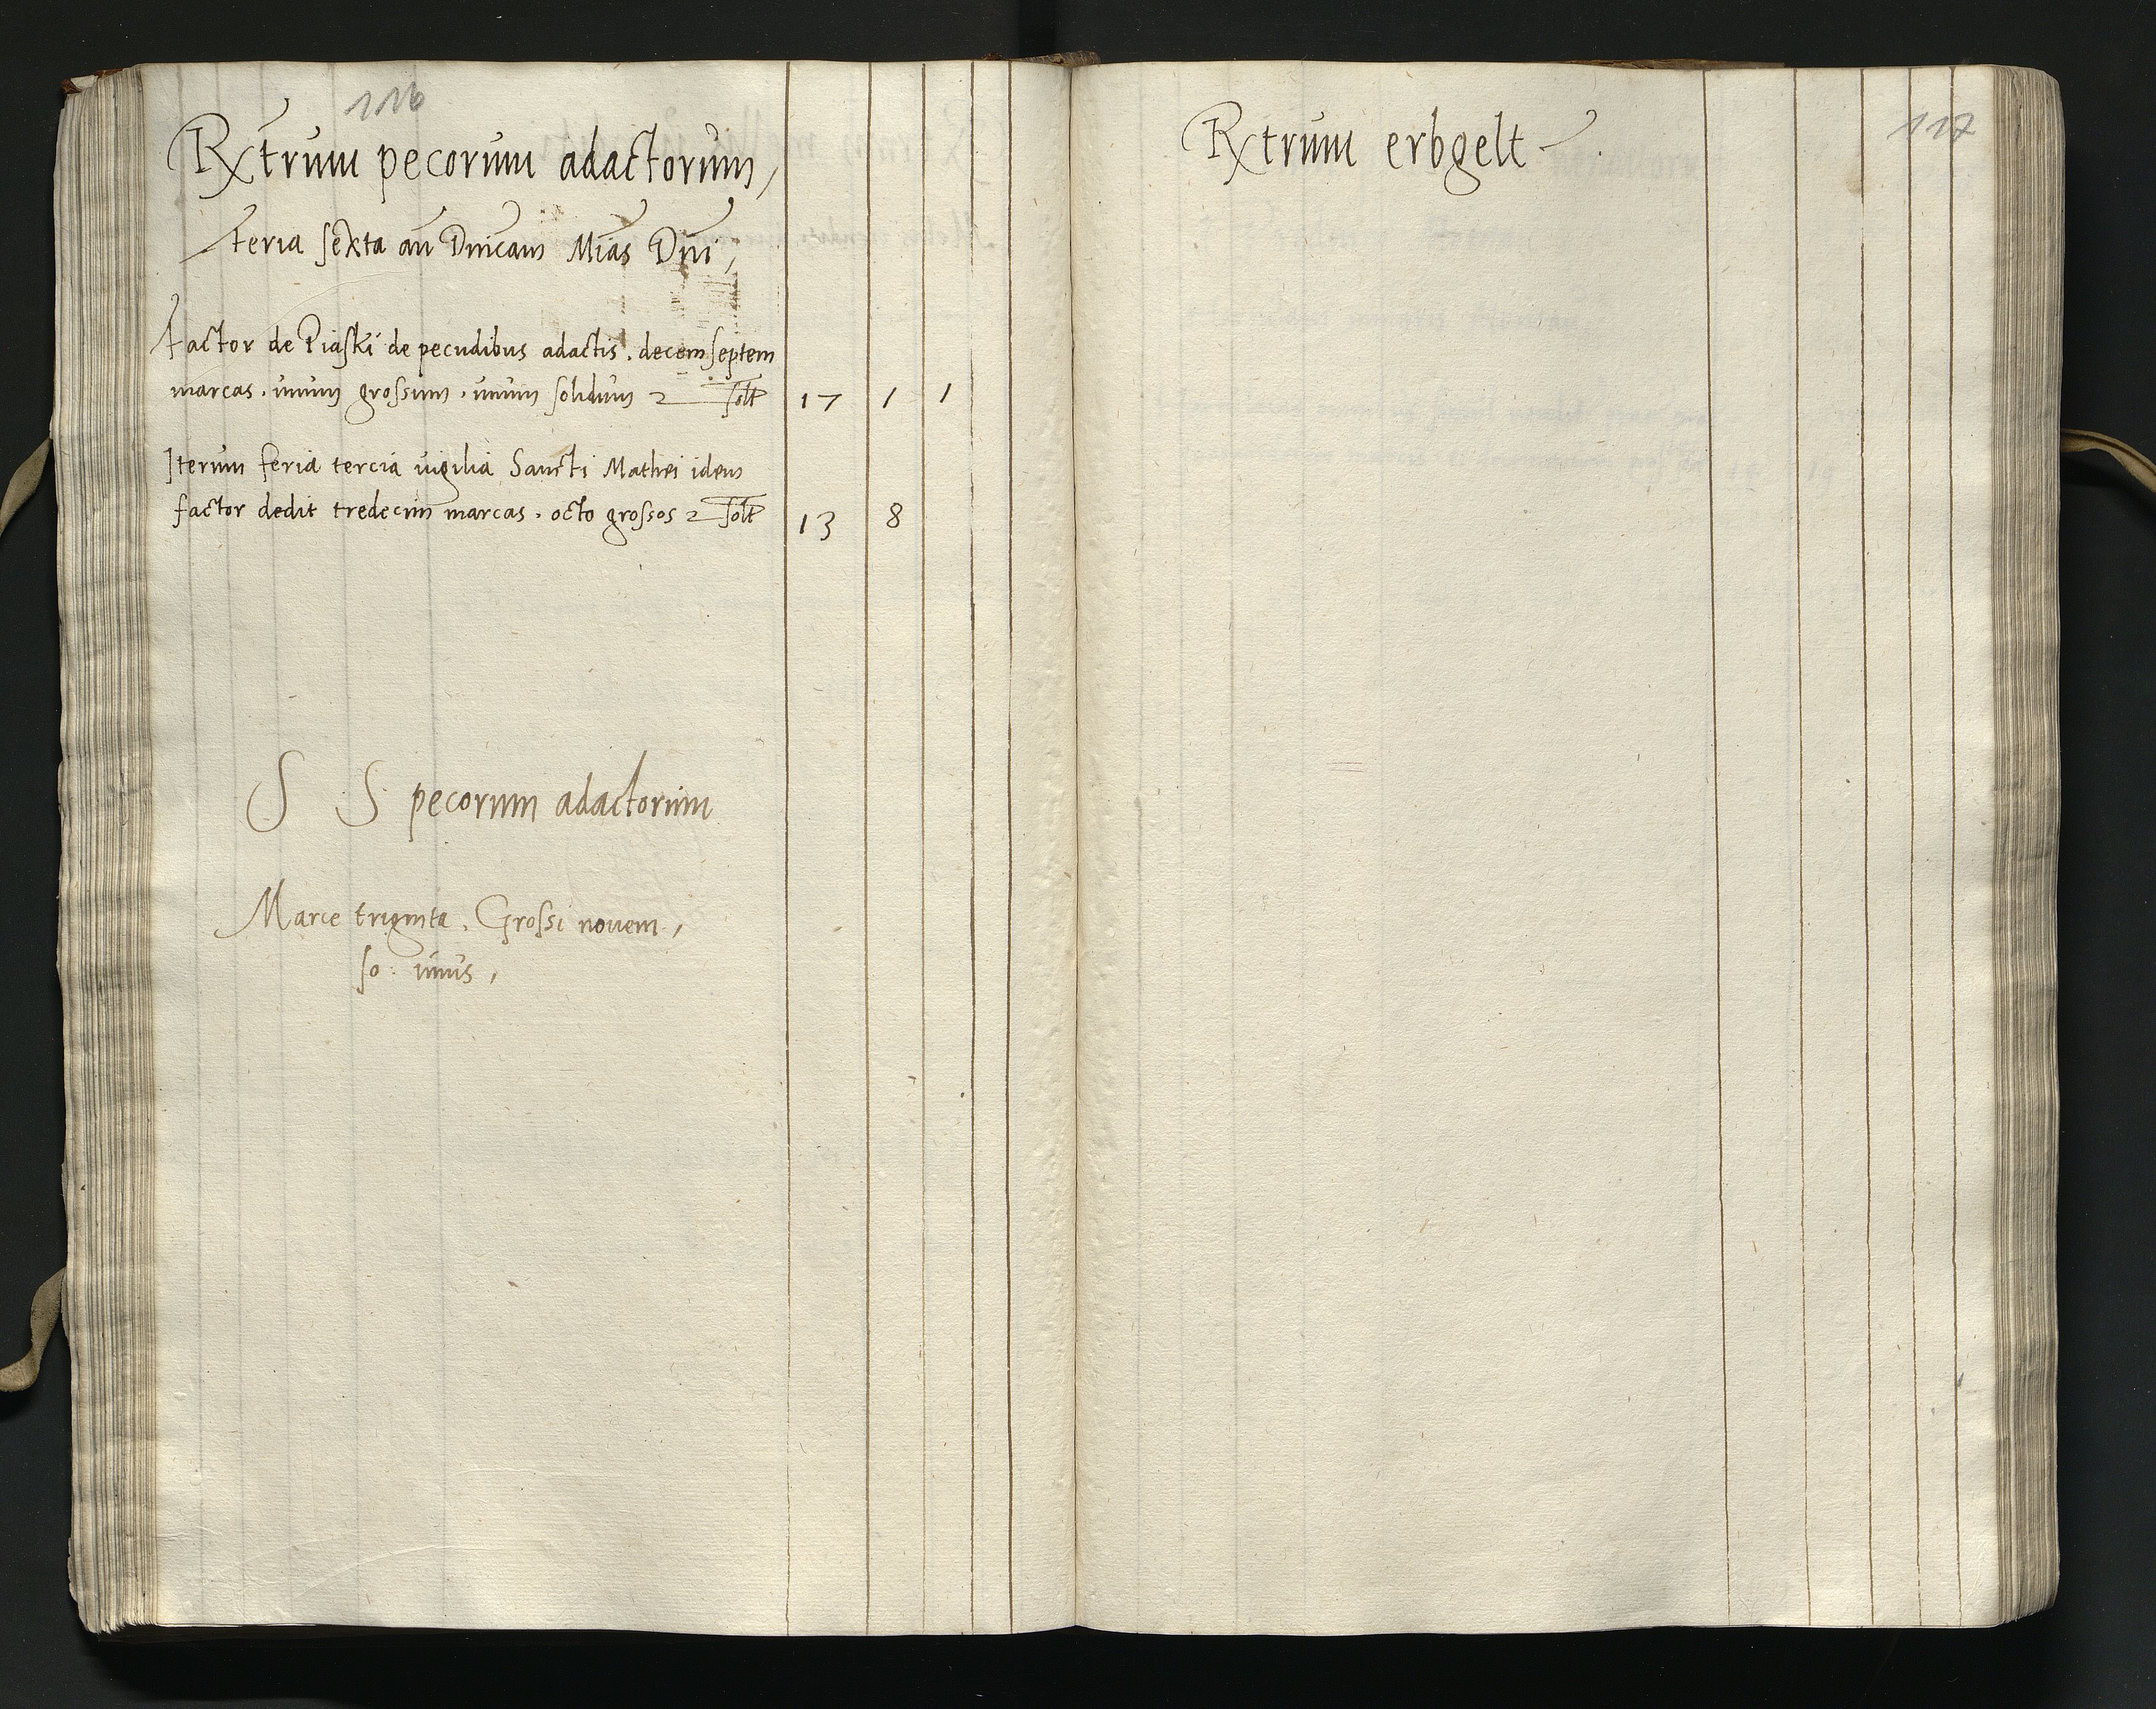 116
Rxtrum pecorum adactorum,
feria sexta an Dnicam Mias Dni,
Factor de Piaski de pecudibus adactis . decem septem
marcas . unum grossum . unum solidum 17 1 1
Iterum feria tercia vigilia Sancti Mathei idem
factor dedit tredecim marcas . octo grossos 13 8
S S pecorum adactorum
Marce triginta . Grossi novem,
so: unus,
117
Rxtrum erbgelt